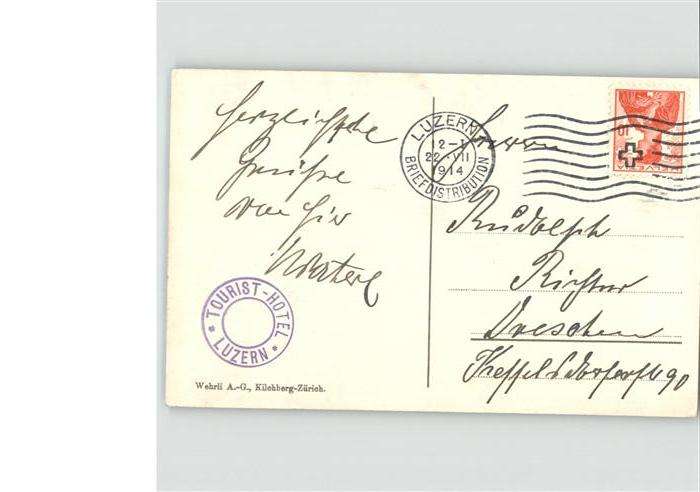 Herzlichste
Grüsse
von hier
LUZERN
12-1
22·VII
914
BRIEFDISTRIBUTION
10
HELVETIA
Herrn
Rudolph
Richter
Dresden
90
TOURIST-HOTEL
* LUZERN *
Wehrli A.-G., Kilchberg-Zürich.